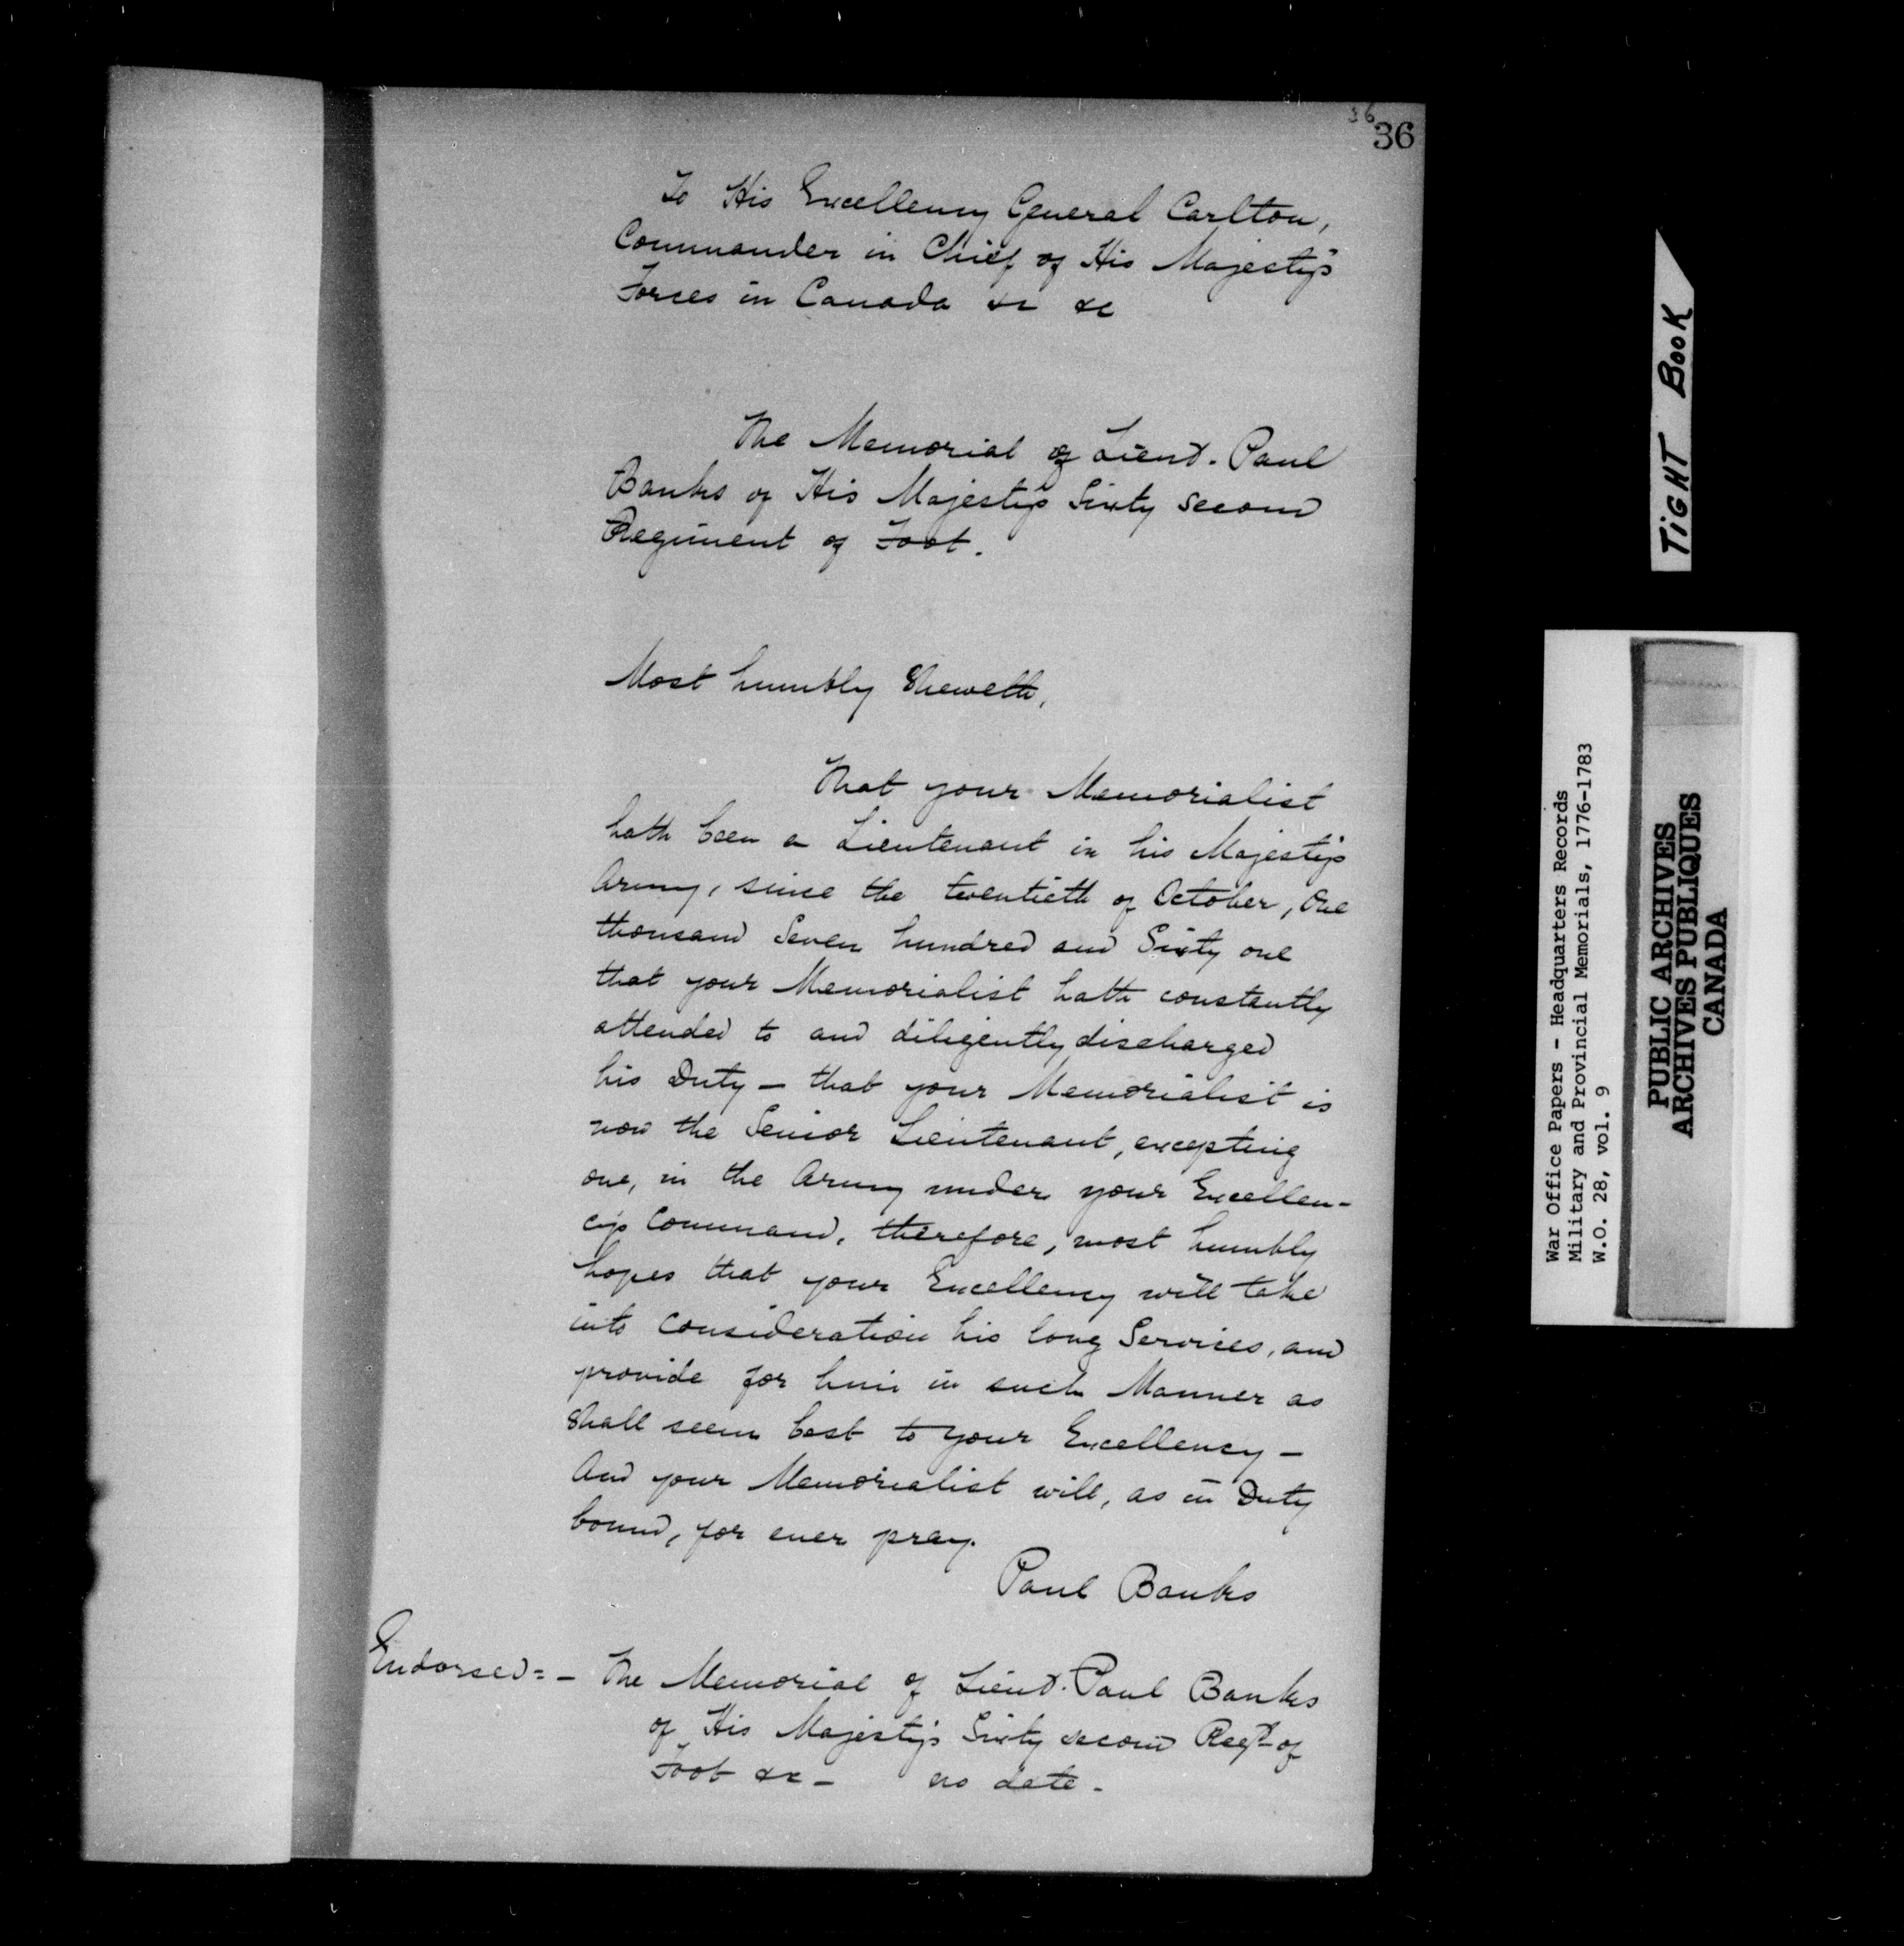 36
36
To His Excellency General Carlton,
Commander in Chief of His Majesty's
Forces in Canada &c &c
The Memorial of Lieut. Paul
Banks of His Majesty's Sixty second
Regiment of Foot.
Most humbly Sheweth,
That your Memorialist
hath been a Lieutenant in his Majesty's
Army, since the twentieth of October, One
thousand Seven hundred and Sixty one
that your Memorialist hath constantly
attended to and diligently discharged
his Duty — that your Memorialist is
now the Senior Lieutenant, excepting
one, in the Army under your Excellen-
cy's Command, therefore, most humbly
hopes that your Excellency will take
into Consideration his long Services, and
provide for him in such Manner as
Shall seem best to your Excellency —
And your Memorialist will, as in Duty
bound, for ever pray.
Paul Banks
Endorsed = — The Memorial of Lieut. Paul Banks
of His Majesty's Sixty second Regt. of
Foot &c — no date —
TIGHT BOOK
War Office Papers - Headquarters Records
Military and Provincial Memorials, 1776-1783
W.O. 28, vol. 9
PUBLIC ARCHIVES
ARCHIVES PUBLIQUES
CANADA